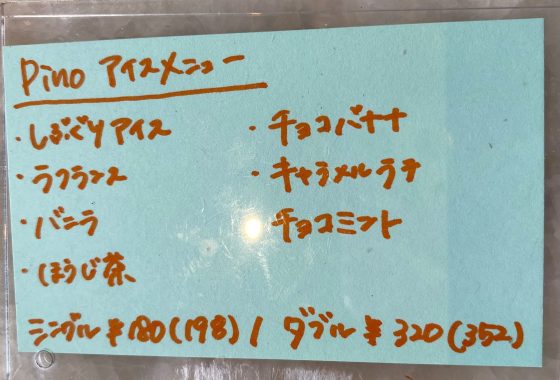 Pino アイスメニュー
・しぼりアイス
・ラフランス
・バニラ
・ほうじ茶
・チョコバナナ
・キャラメルラテ
チョコミント
シングル ¥180(198) / ダブル ¥320(352)